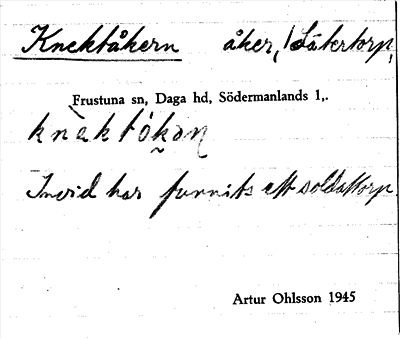 Knektåkern åker, Sätertorp,
Frustuna sn, Daga hd, Södermanlands l,.
knektókan
Invid har funnits ett soldattorp.
Artur Ohlsson 1945